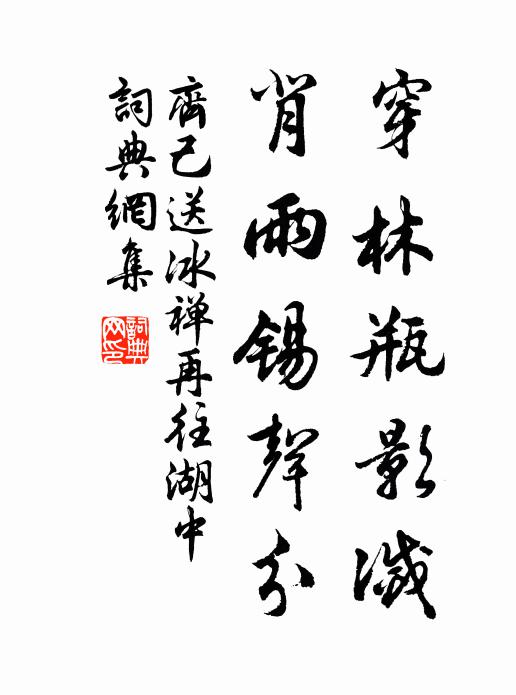 穿林瓶影滅
背雨錫聲分
齊己送冰禅再往湖中
詞典網集
詞典網印